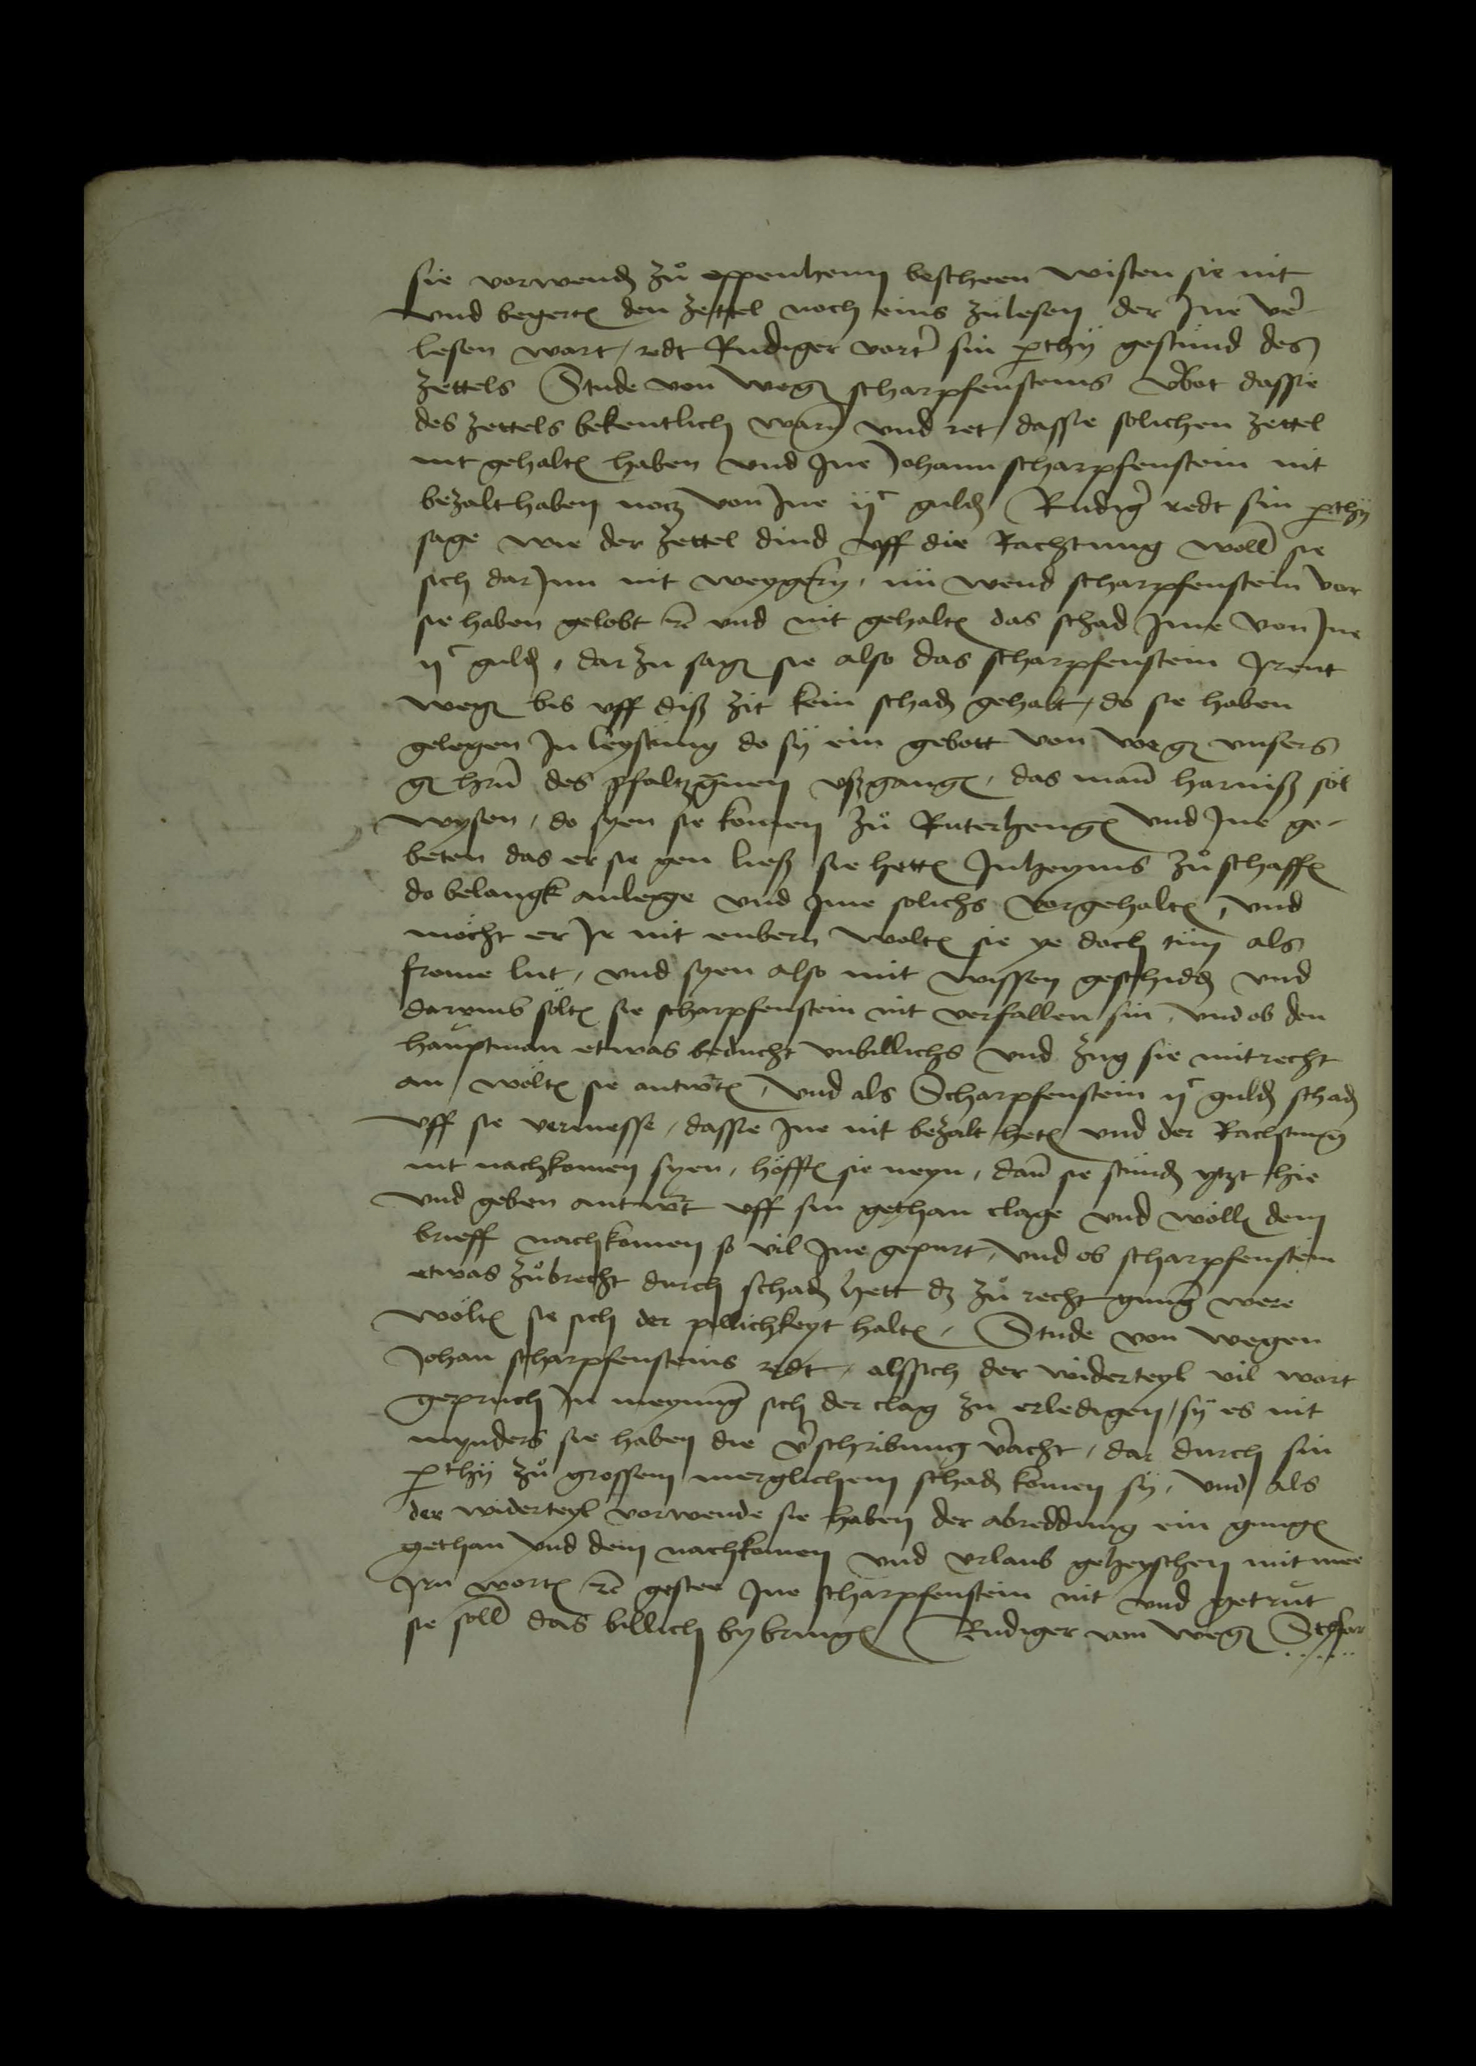 sie vorwend zů oppenheim bescheen wisten sie nit
vnd begert den zettel noch eins zulesen der Ine ver-
lesen wart / redt Rudiger vort sin pthy gestund des
zettels Stude von weg scharpfensteins vbot dassie
des zettels bekentlich warn vnd ret / dassie solichen zettel
nit gehalt haben vnd Ine Johann scharpfenstein nit
bezalt haben noch von Ine ijc guld Rudig redt sin pthy
sage wie der zettel dind vff die Rachtung woll sie
sich dar Inn nit weygern / nü wend scharpfenstein vor
sie haben gelobt rc vnd nit gehalt das schad Ime von Ine
ijc guld / dar zu sag sie also das scharpfenstein Irent
weg bis vff diß zit kein schad gehabt / do sie haben
gelegen In leystung do sÿ ein gebott von weg vnsers
g hrn des pfaltzgraen vßgang / das man harniß söl
wysen / do syen sie komen zů Ruterheng vnd Ine ge-
beten das er sie gen ließ sie hett Inheyms zů schaff
do belangk anlege vnd Ime solichs vorgehalt / vnd
möcht er Ir nit enbern wolt sie ye doch tün als
frome lut / vnd syen also mit wissen geschidd vnd
darumb sölt sie scharpfenstein nit verfallen sin / vnd ob den
hauptman etwas beducht vnbillichs vnd züg sie mit recht
an / wölt sie antwt / vnd als Scharpfenstein ijc guld schad
vff sie vermesse / dassie Ine nit bezalt het vnd der Rachtung
nit nachkomen syen / höfft sie neyn / dan sie stünd ytzt hie
vnd geben antwt vff sin gethan clage vnd wöll dem
brieff nachkomen so vil Ine gepurt / vnd ob scharpfenstein
etwas zůbrecht durch schad hett dz zů recht gnug were
wölt sie sich der pillichkeyt halt / Stude von wegen
Johan scharpfensteins redt / alssich der widerteyl vil wort
gepruch In meynung sich der clag zu erledigen / sÿ es nit
mynders sie haben die vschribung vacht / dar durch sin
pthÿ zů grossem merglichem schad komen sy / vnd als
der widerteyl vorwende sie haben der abreddung ein gnug
gethan vnd dem nachkomen vnd vrlaub geheyschen mit
Irn wort rc gestee Ine scharpfenstein nit vnd getrut
sie soll das billich by bring Rudiger von weg